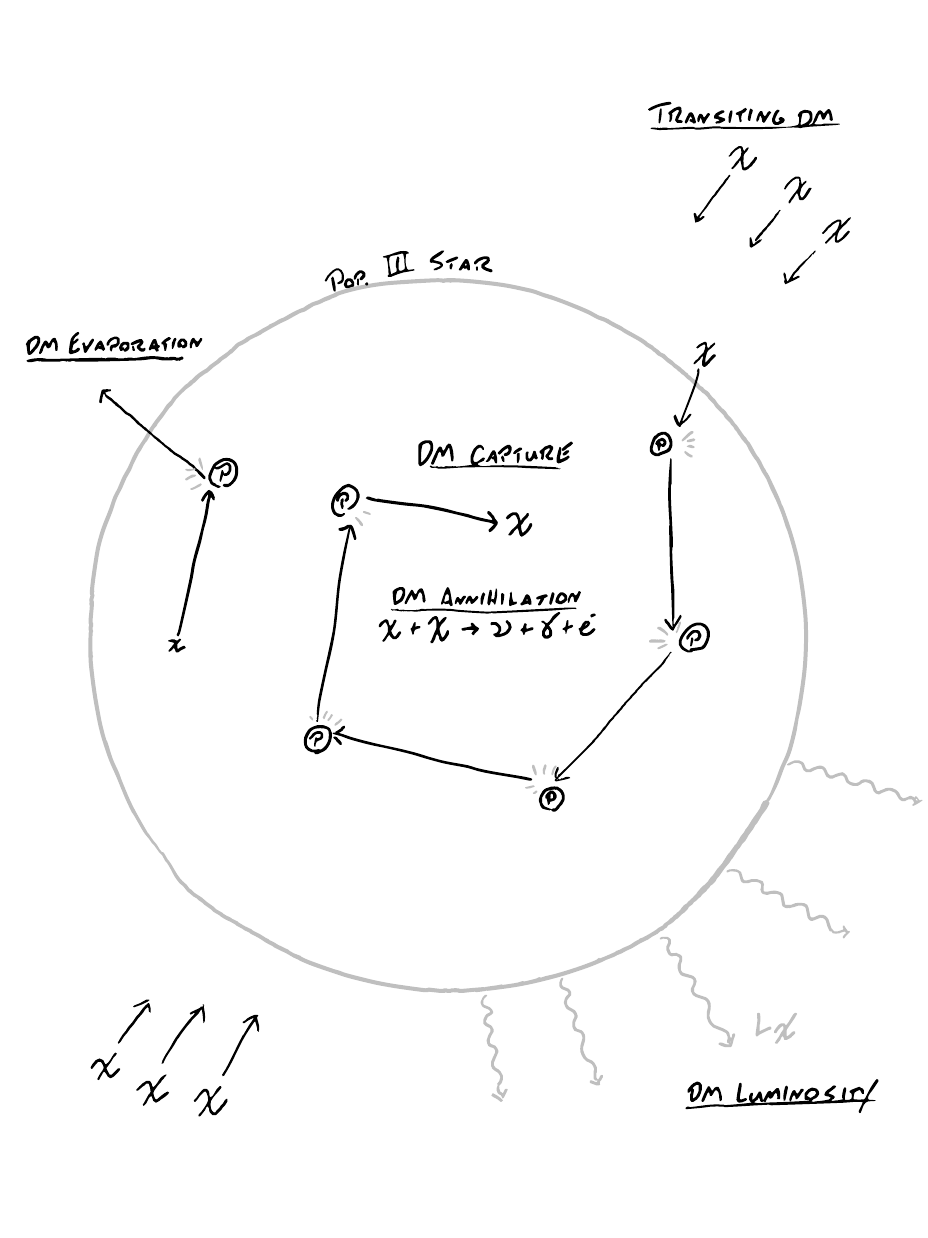 TRANSITING DM
χ
χ
χ
POP. III STAR
DM EVAPORATION
χ
DM CAPTURE
P
P
P
χ
DM ANNIHILATION
χ + χ → ν + γ + e⁻
P
χ
P
P
χ
χ
χ
Lχ
DM LUMINOSITY